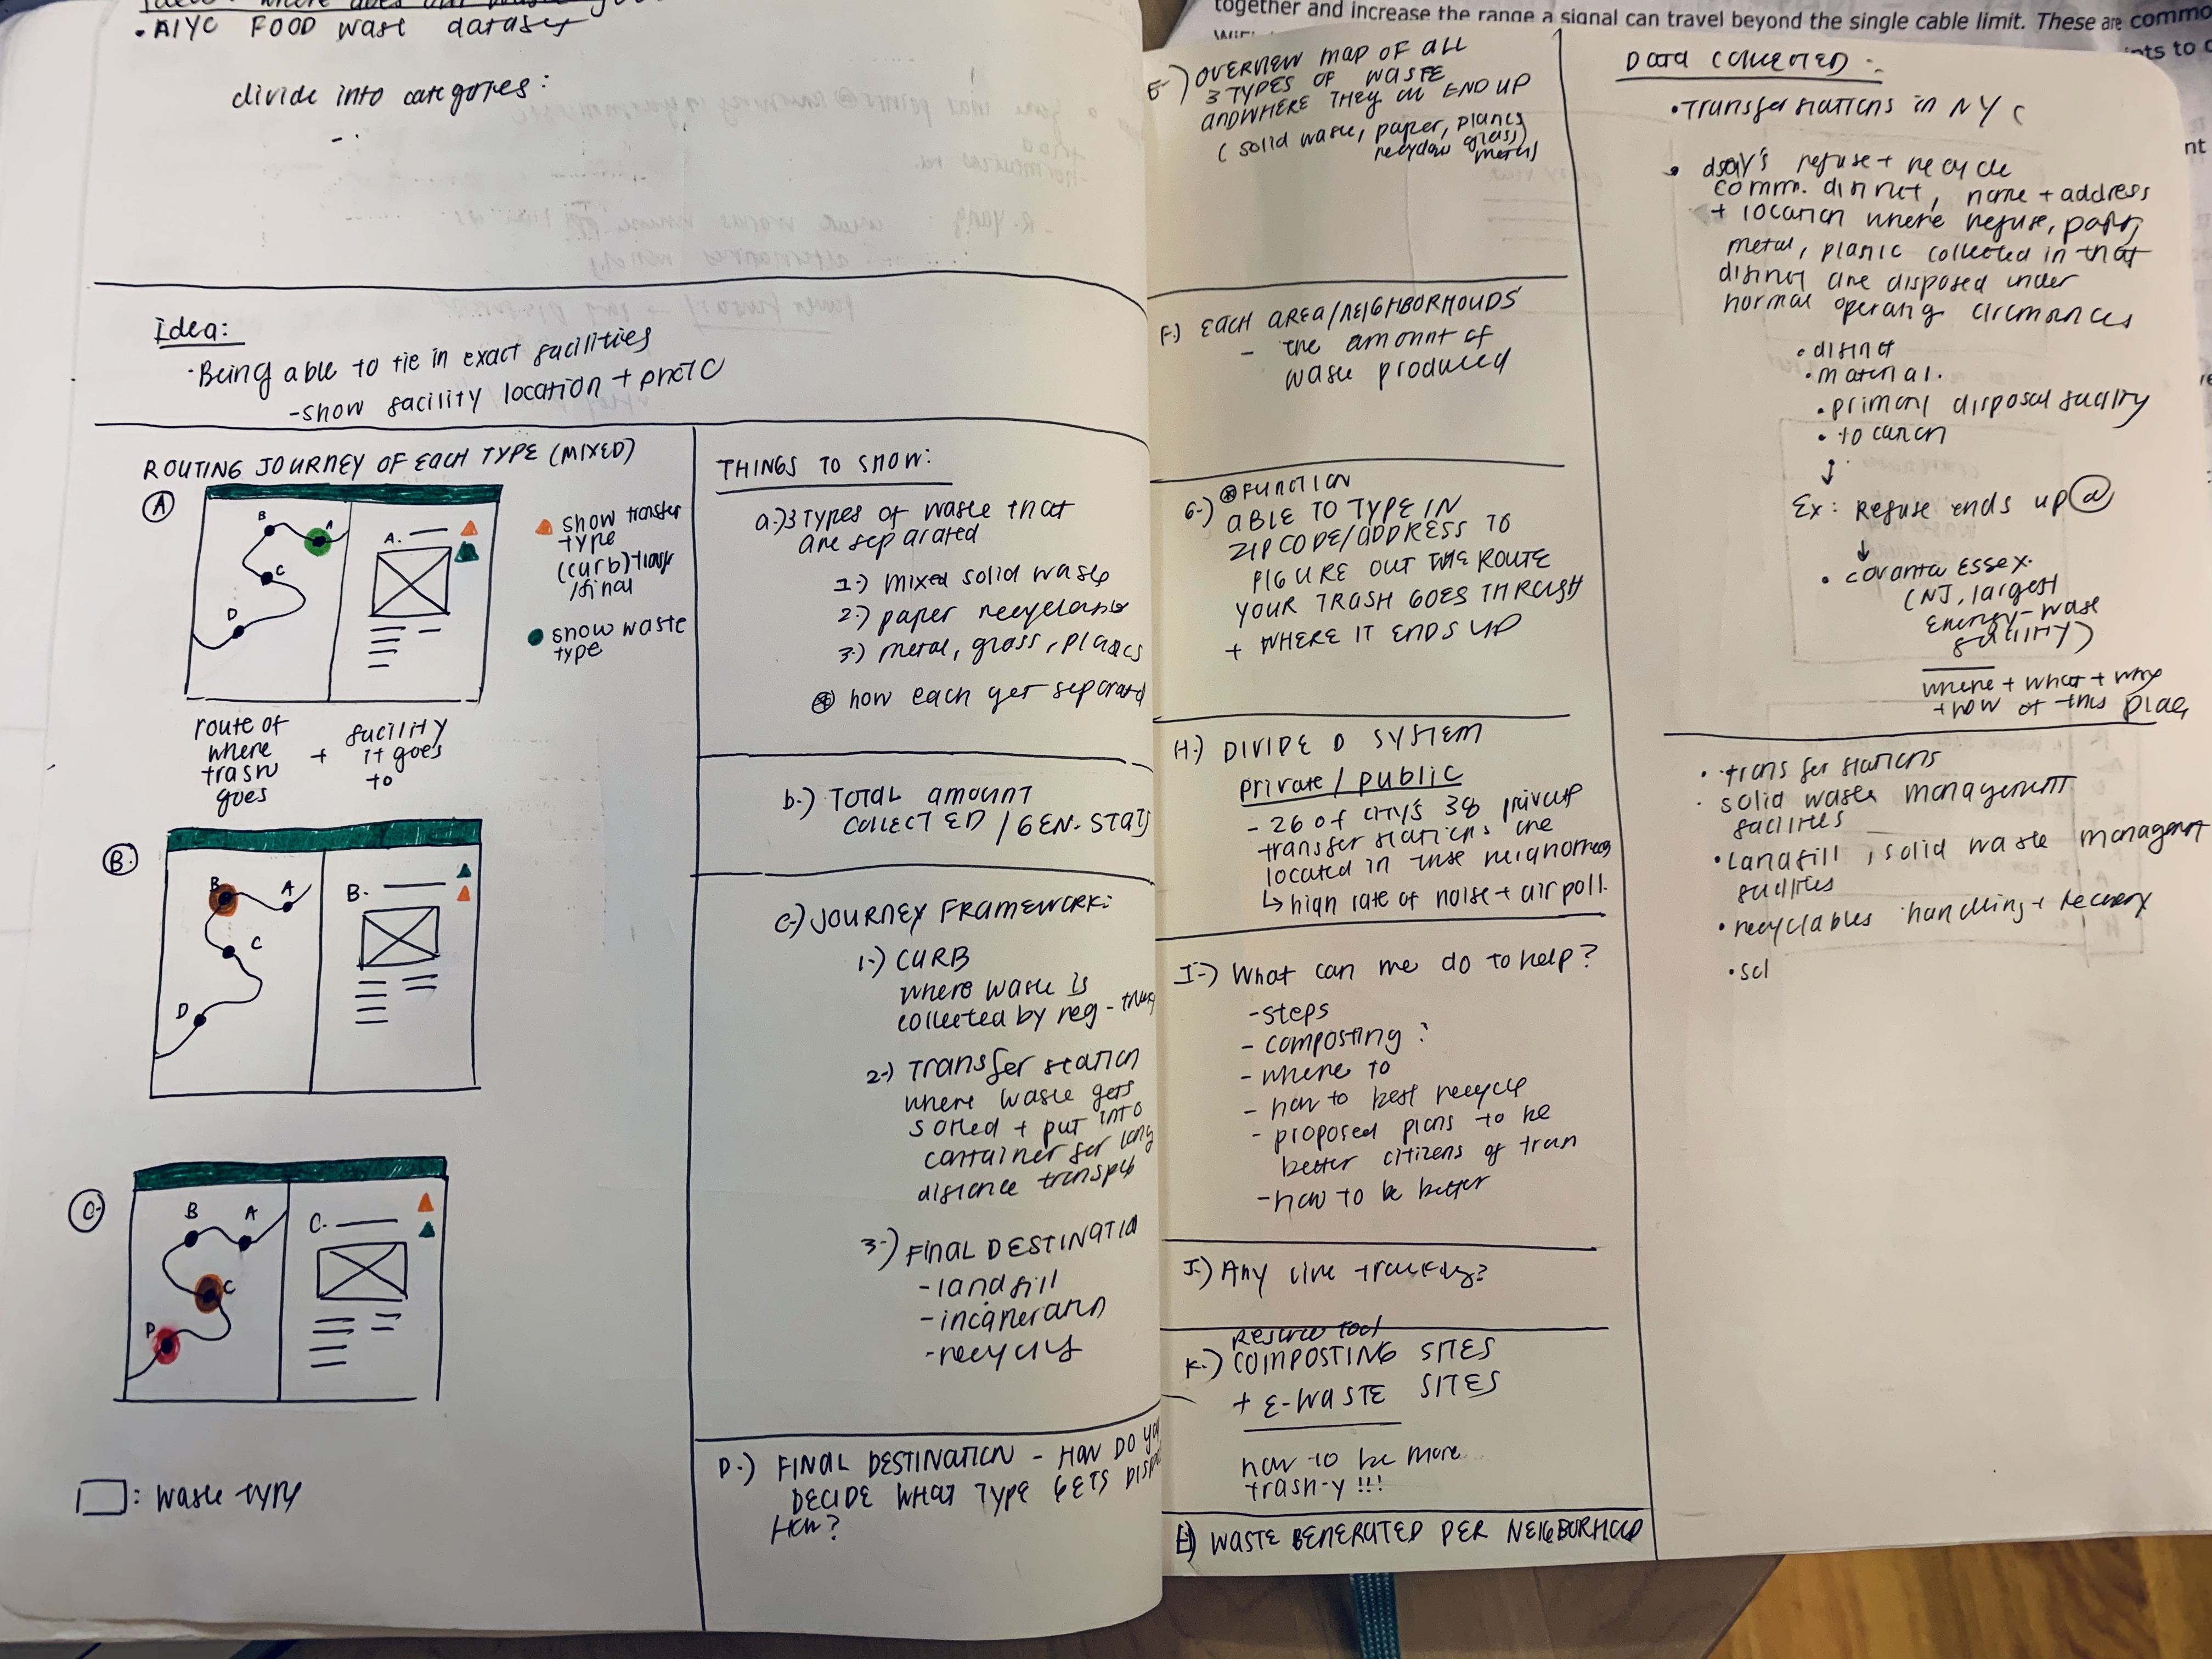 • NYC FOOD wast dataset
divide into categories:
-.
Idea:
· Being able to tie in exact facilities
- show facility location +
ROUTING JOURNEY OF EACH TYPE (MIXED)
A
B
A
C
D
A.
show transfer
type
(curb) trans
/final
show waste
type
route of
where
trash
goes
+
facility
it goes
to
B.
B
A
C
D
B-
C.
B
A
C
D
C.
: waste type
THINGS TO SHOW:
a.) 3 Types of waste that
are separated
1.) mixed solid waste
2.) paper recyclable
3.) metal, glass, plastics
how each get separated
b.) TOTAL amount
COLLECTED / GEN. STATS
C.) JOURNEY FRAMEWORK:
1.) CURB
where waste is
collected by reg - truck
2.) Transfer station
where waste gets
sorted + put into
container for long
distance
3.) FINAL DESTINATIO
- landfill
- incineration
- recycling
D.) FINAL DESTINATION - HOW DO YOU
DECIDE WHAT TYPE GETS DISPO
HOW?
E.) OVERVIEW map OF ALL
3 TYPES OF WASTE
AND WHERE THEY all END UP
( solid waste, paper, plastics
glass)
metal
F.) EACH AREA/NEIGHBORHOODS
- the amount of
waste produced
G.) FUNCTION
ABLE TO TYPE IN
ZIPCODE/ADDRESS TO
FIGURE OUT THE ROUTE
YOUR TRASH GOES THROUGH
+ WHERE IT ENDS UP
H.) DIVIDE D SYSTEM
private / public
- 26 of city's 38 private
transfer stations are
located in these
↳ high rate of noise + air poll.
I.) What can we do to help?
- steps
- composting?
- where to
- how to best recycle
- proposed plans to be
better citizens of
- how to be better
J.) Any live tracking?
K.) COMPOSTING SITES
+ E-WASTE SITES
how to be more
trash-y !!!
WASTE GENERATED PER NEIGBORHOOD
Data Collected:
• Transfer stations in NYC
• dsny's refuse + recycle
comm. district, name + address
+ location where refuse, paper,
metal, plastic collected in that
district are disposed under
normal operating
• district
• material.
• primary disposal facility
• location
↓
Ex: Refuse ends up @
↓
• covanta ESSEX.
(NJ, largest
energy-waste
facility)
where + what + why
+ how of this place
• transfer stations
• solid waste management
facilities
• Landfill, solid waste management
facilities
• recyclables handling + recovery
• sol
together and increase the range a signal can travel beyond the single cable limit. These are commo